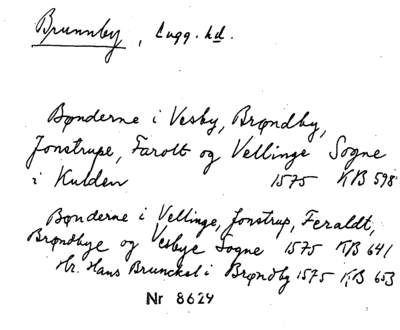 Brunnby, Lugg. hd.
Bønderne i Vesby, Brøndby,
Jonstrupe, Farolt og Vellinge Sogne
i Kulden 1575 KB 598
Bønderne i Vellinge, Jonstrup, Feraldt,
Brøndbye og Vesbye Sogne 1575 KB 641
Hr. Hans Brunckel i Brøndby 1575 KB 653
Nr 8629